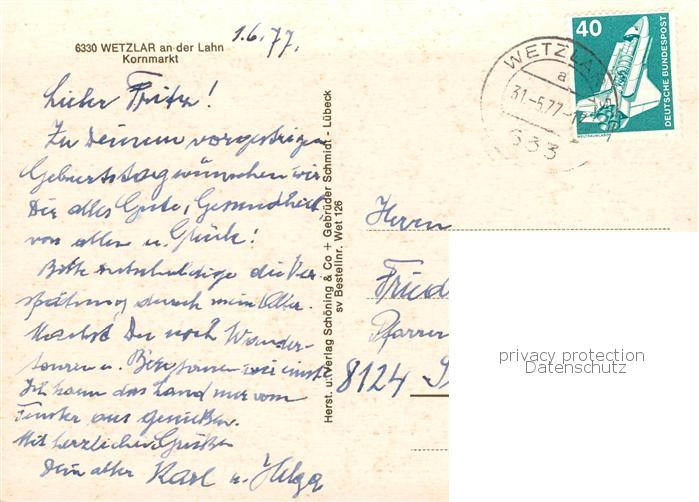 1.6.77.
6330 WETZLAR an der Lahn
Kornmarkt
Lieber Fritz!
Zu Deinem vorgestrigen
Geburtstag wünschen wir
Dir alles Gute, Gesundheit
vor allem u. Glück!
Bitte entschuldige die Ver-
spätung durch mein Alter.
Machst Du noch Wander-
touren u. Bergtouren wie einst?
Ich kann das Land nur vom
Fenster aus genießen.
Mit herzlichen Grüßen
Dein alter Karl u. Helga
Herst. u. Verlag Schöning & Co + Gebrüder Schmidt - Lübeck
sv Bestellnr. Wet 126
WETZLAR
a
31.-5.77
633
40
DEUTSCHE BUNDESPOST
WELTRAUMLABOR
Herrn
Fried
Pfarrer
8124
privacy protection
Datenschutz